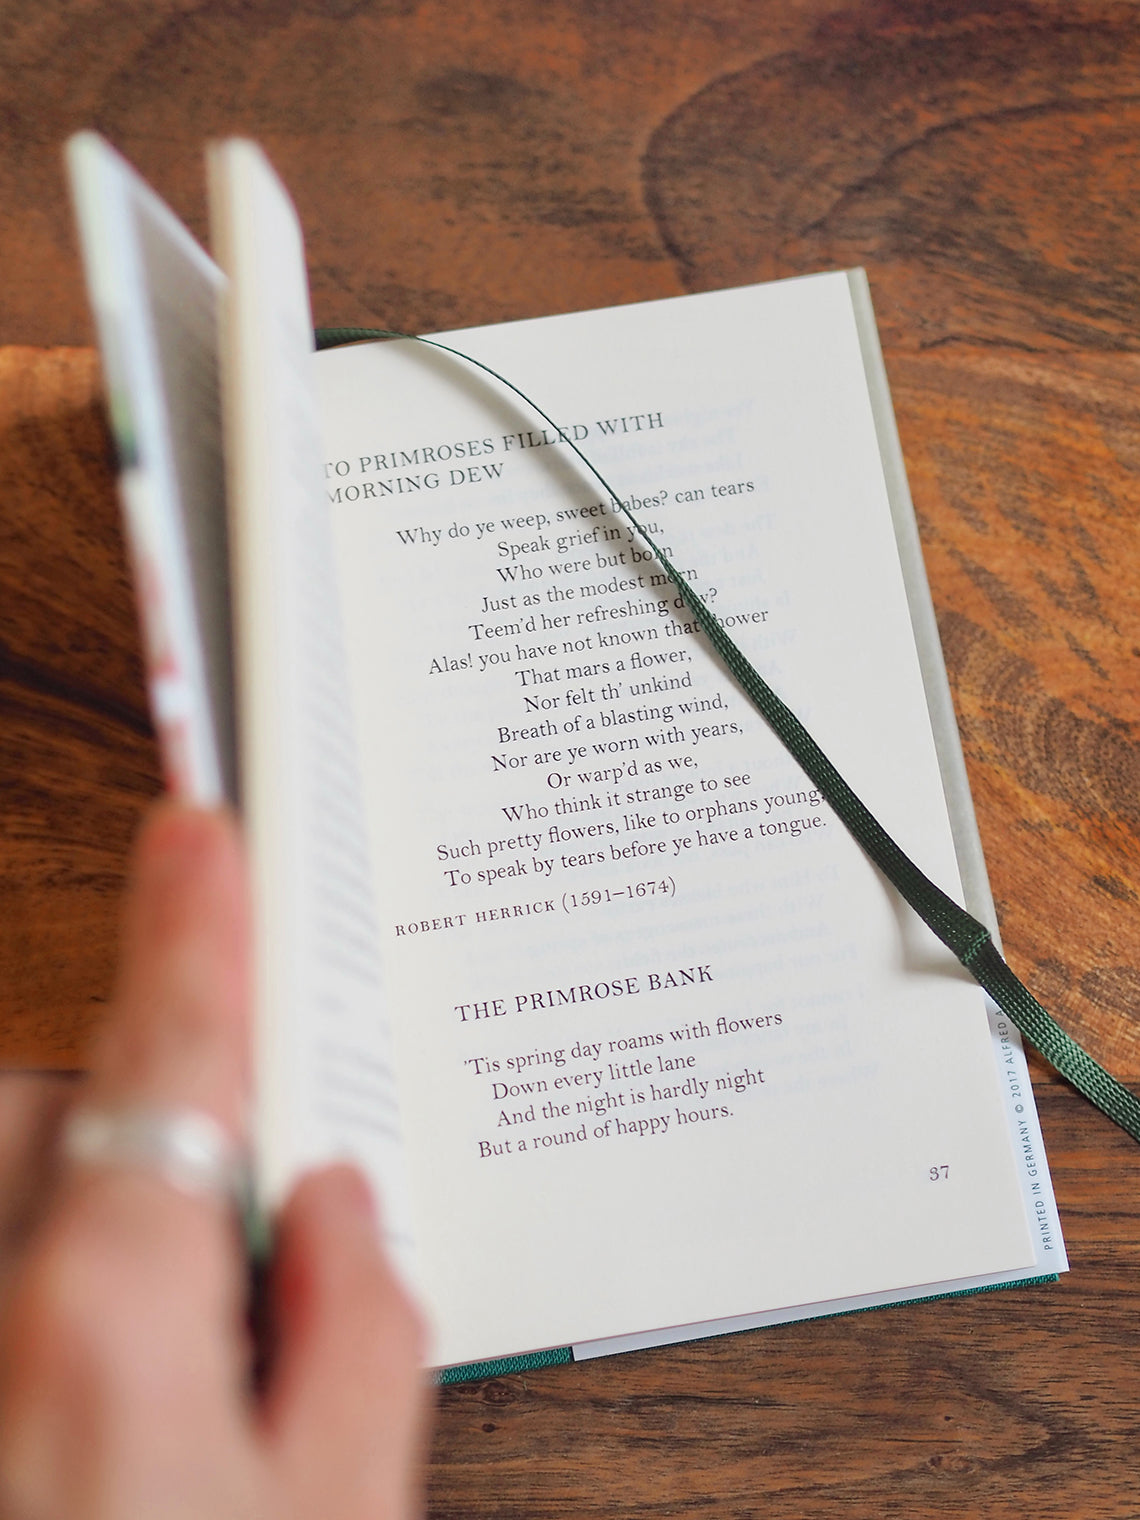 TO PRIMROSES FILLED WITH
MORNING DEW
Why do ye weep, sweet babes? can tears
Speak grief in you,
Who were but born
Just as the modest morn
Teem'd her refreshing dew?
Alas! you have not known that shower
That mars a flower,
Nor felt th' unkind
Breath of a blasting wind,
Nor are ye worn with years,
Or warp'd as we,
Who think it strange to see
Such pretty flowers, like to orphans young,
To speak by tears before ye have a tongue.
ROBERT HERRICK (1591–1674)
THE PRIMROSE BANK
'Tis spring day roams with flowers
Down every little lane
And the night is hardly night
But a round of happy hours.
37
PRINTED IN GERMANY © 2017 ALFRED A